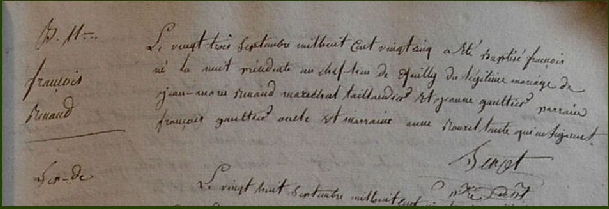 B. M---
françois
Renaud
Le vingt trois Septembre mil huit Cent vingt cinq a Eté Baptisé françois
né la nuit précédente au chef-lieu de du légitime mariage de
jean-marie Renaud maréchal taillandier Et jeanne gaultier parrain
françois gaultier oncle Et marraine anne tante qui ne Signent.
Benoit
Sep-de
Le vingt huit Septembre mil huit Cent